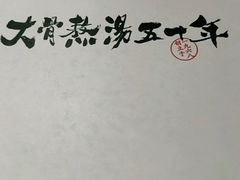 大骨熬湯五十年